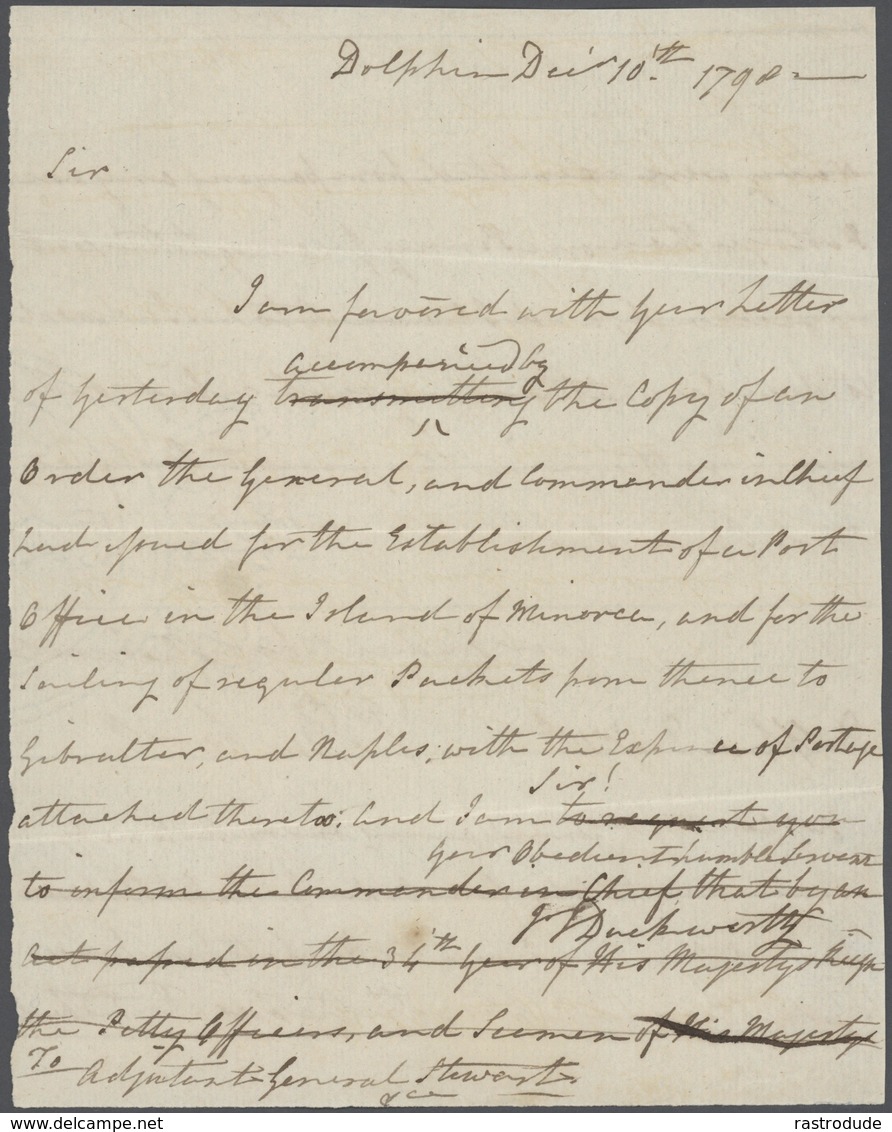 Dolphin Decr 10th 1798
Sir
I am favored with your Letter
accompanied by
of Yesterday transmitting the Copy of an
Order the General, and Commander in Chief
had issued for the Establishment of a Post
Office in the Island of Minorca, and for the
Sailing of regular Packets from thence to
Gibralter, and Naples, with the Expence of Postage
Sir!
attached thereto. And I am to request you
Your Obedient humble Servant
to inform the Commander in Chief, that by an
J T Duckworth
Act passed in the 34th Year of His Majestys Reign
the Petty Officers, and Seamen of His Majestys
To
Adjutant General Stewart
&ca
rastrodude